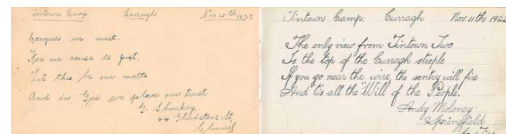 Tintown Camp Curragh Nov 10th 1922
Conquer we must.
For our cause is just.
Let this be our motto
And in God we place our trust
G. Sharkey
44 Gladstone St
Clonmel
Tintown Camp. Curragh Nov 11th 1922
The only view from Tintown Two
Is the top of the Curragh steeple
If you go near the wire, the sentry will fire
And tis all the Will of the People!
Andy Moloney
Springfield